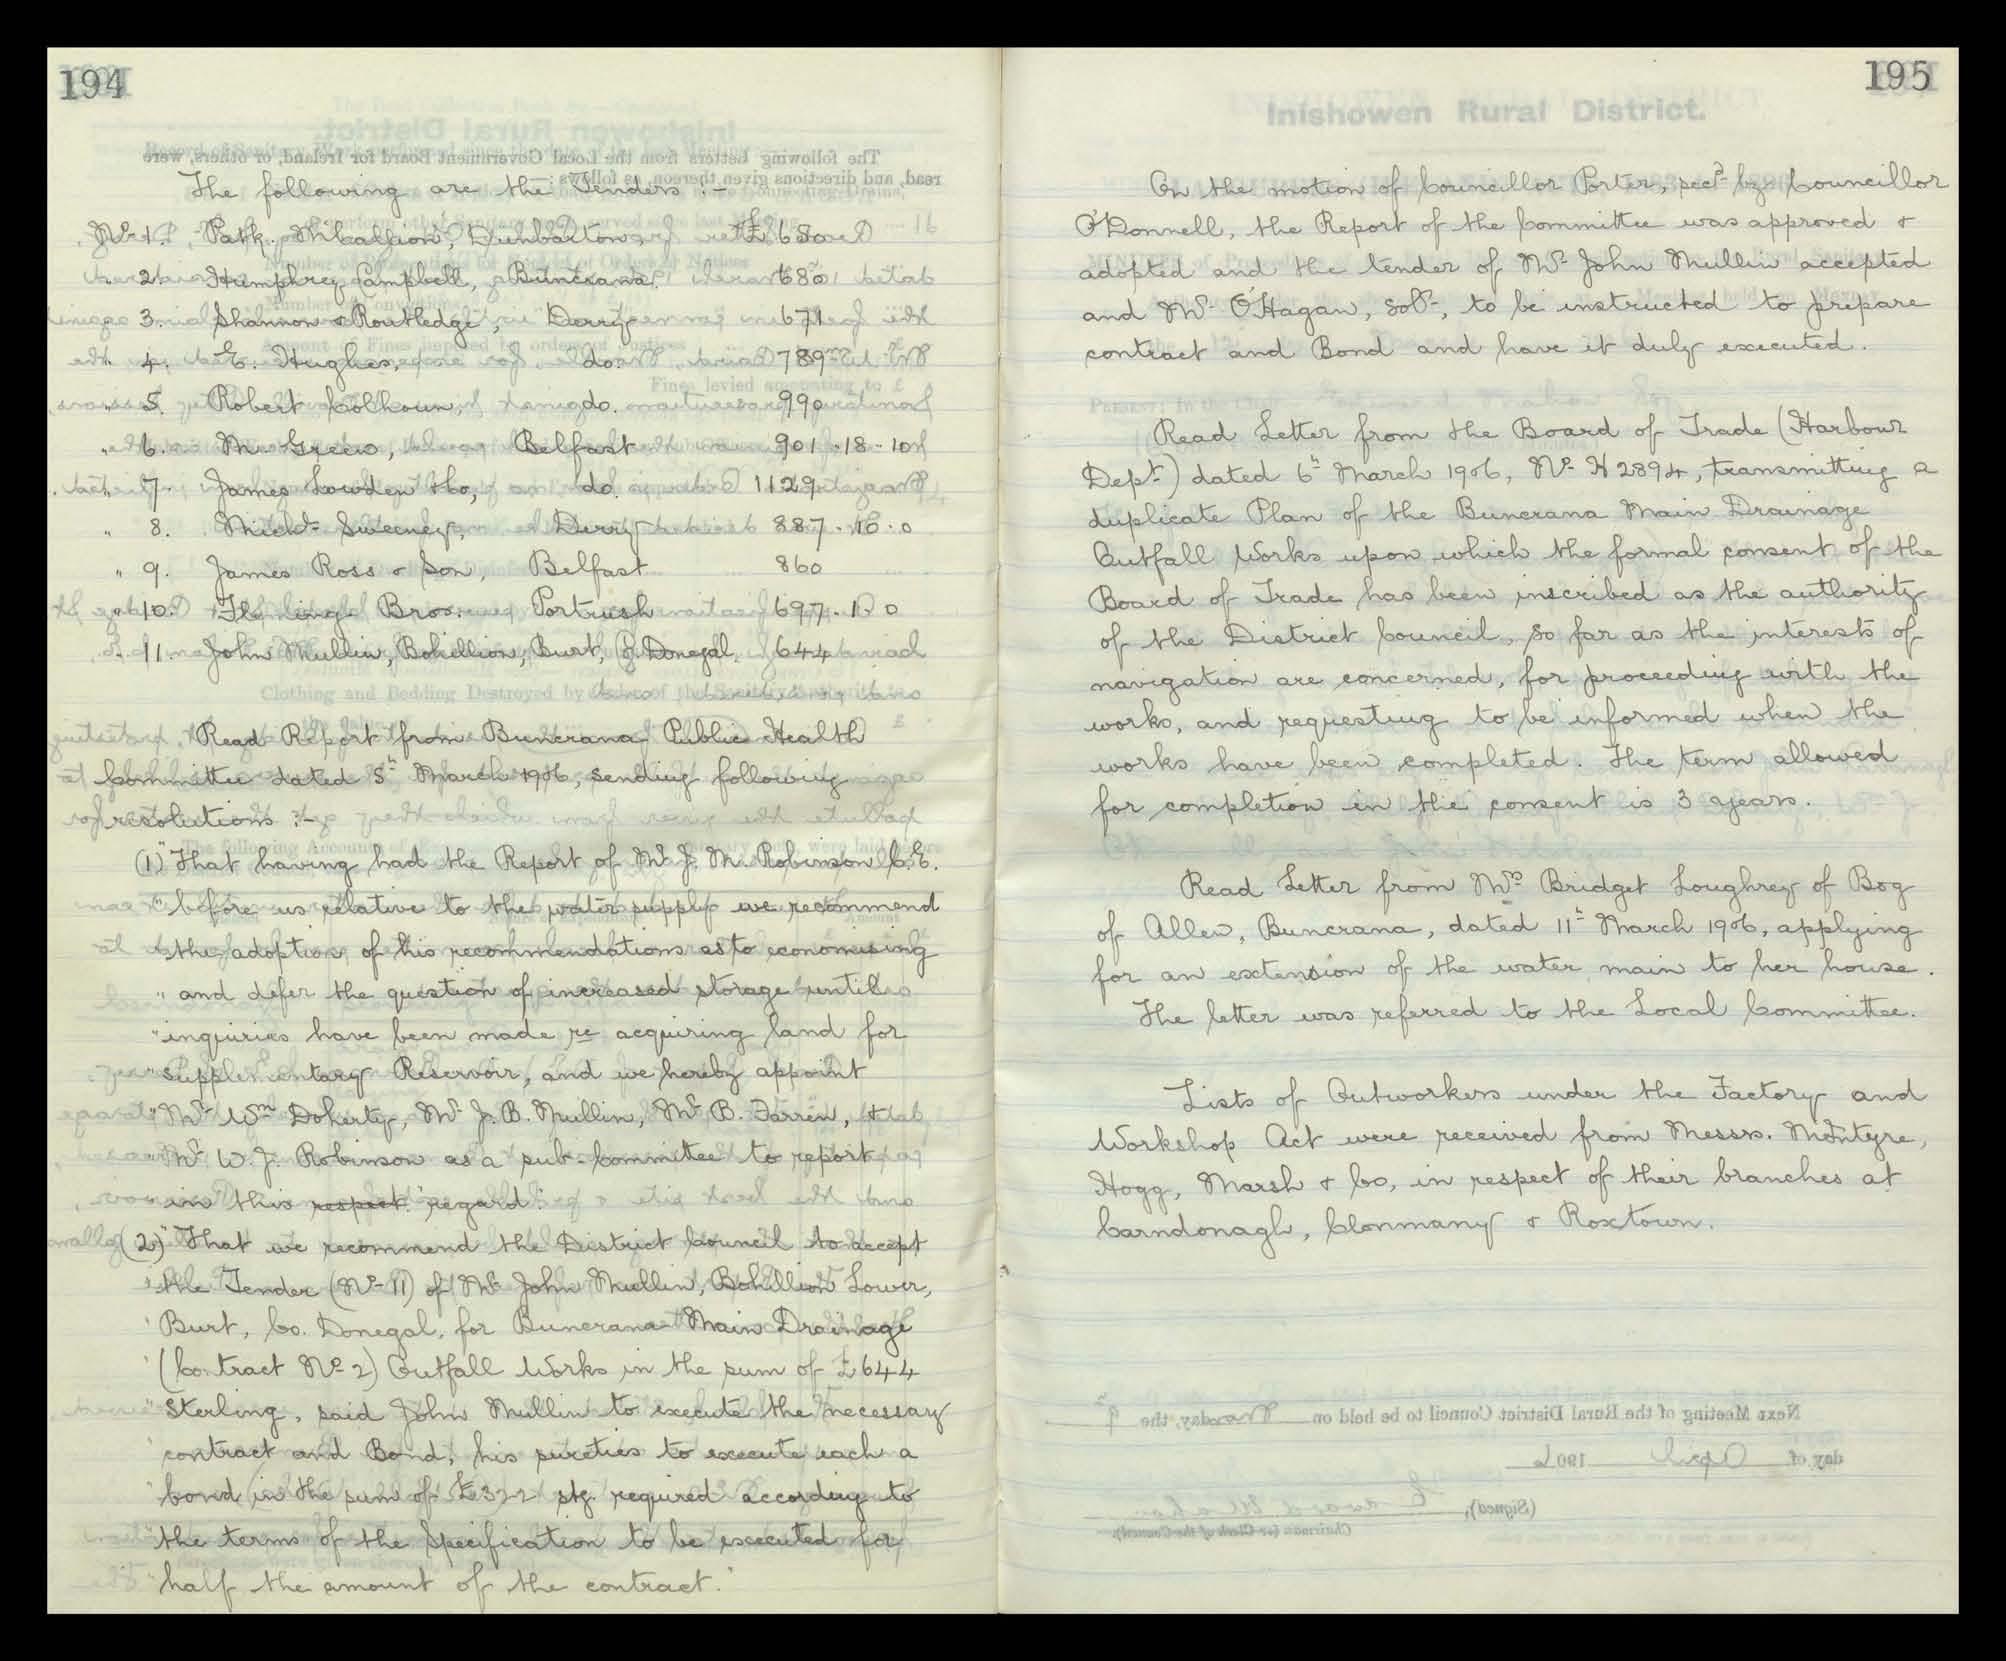 194
The following are the Tenders :-
No. 1. Patk. McCallion, Dunbarton £ 650
" 2. Humphrey Campbell, Buncrana 680
" 3. Shannon & Routledge, Derry 671
" 4. E. Hughes, do. 789
" 5. Robert Colhoun, do. 990
" 6. M. Green, Belfast 901 - 18 - 10
" 7. James Lowden & Co, do. 1129
" 8. Michl. Sweeney, Derry 887 . 10 . 0
" 9. James Ross & Son, Belfast 860
" 10. Fleming Bros. Portrush 697 . 1 0
" 11. John Mullin, Bohillion, Burt, Co. Donegal. 644
Read Report from Buncrana Public Health
Committee dated 5th March 1906, sending following
resolutions :-
(1) "That having had the Report of Mr J. M. Robinson C.E.
" before us relative to the water supply we recommend
" the adoption of his recommendations as to economising
" and defer the question of increased storage until
" inquiries have been made re acquiring land for
" supplementary Reservoir, and we hereby appoint
" Mr Wm Doherty, Mr J. B. Mullin, Mr B. Farren, &
" Mr W. J. Robinson as a sub-Committee to report
" in this respect. regard."
(2) "That we recommend the District Council to accept
" the Tender (No. 11) of Mr John Mullin, Bohillion Lower,
" Burt, Co. Donegal, for Buncrana Main Drainage
" (Contract No. 2) Outfall Works in the sum of £644
" Sterling, said John Mullin to execute the necessary
" contract and Bond, his sureties to execute each a
" bond in the sum of £322 stg. required according to
" the terms of the Specification to be executed for
" half the amount of the contract."
195
Inishowen Rural District.
On the motion of Councillor Porter, secd. by Councillor
O'Donnell, the Report of the Committee was approved &
adopted and the tender of Mr John Mullin accepted
and Mr O'Hagan, Solr., to be instructed to prepare
contract and Bond and have it duly executed.
Read Letter from the Board of Trade (Harbour
Dept.) dated 6th March 1906, No. H 2894, transmitting a
duplicate Plan of the Buncrana Main Drainage
Outfall Works upon which the formal consent of the
Board of Trade has been inscribed as the authority
of the District Council, so far as the interests of
navigation are concerned, for proceeding with the
works, and requesting to be informed when the
works have been completed. The term allowed
for completion in the consent is 3 years.
Read Letter from Mrs Bridget Loughrey of Bog
of Allen, Buncrana, dated 11th March 1906, applying
for an extension of the water main to her house.
The letter was referred to the Local Committee.
Lists of Outworkers under the Factory and
Workshop Act were received from Messrs. McIntyre,
Hogg, Marsh & Co, in respect of their branches at
Carndonagh, Clonmany & Roxtown.